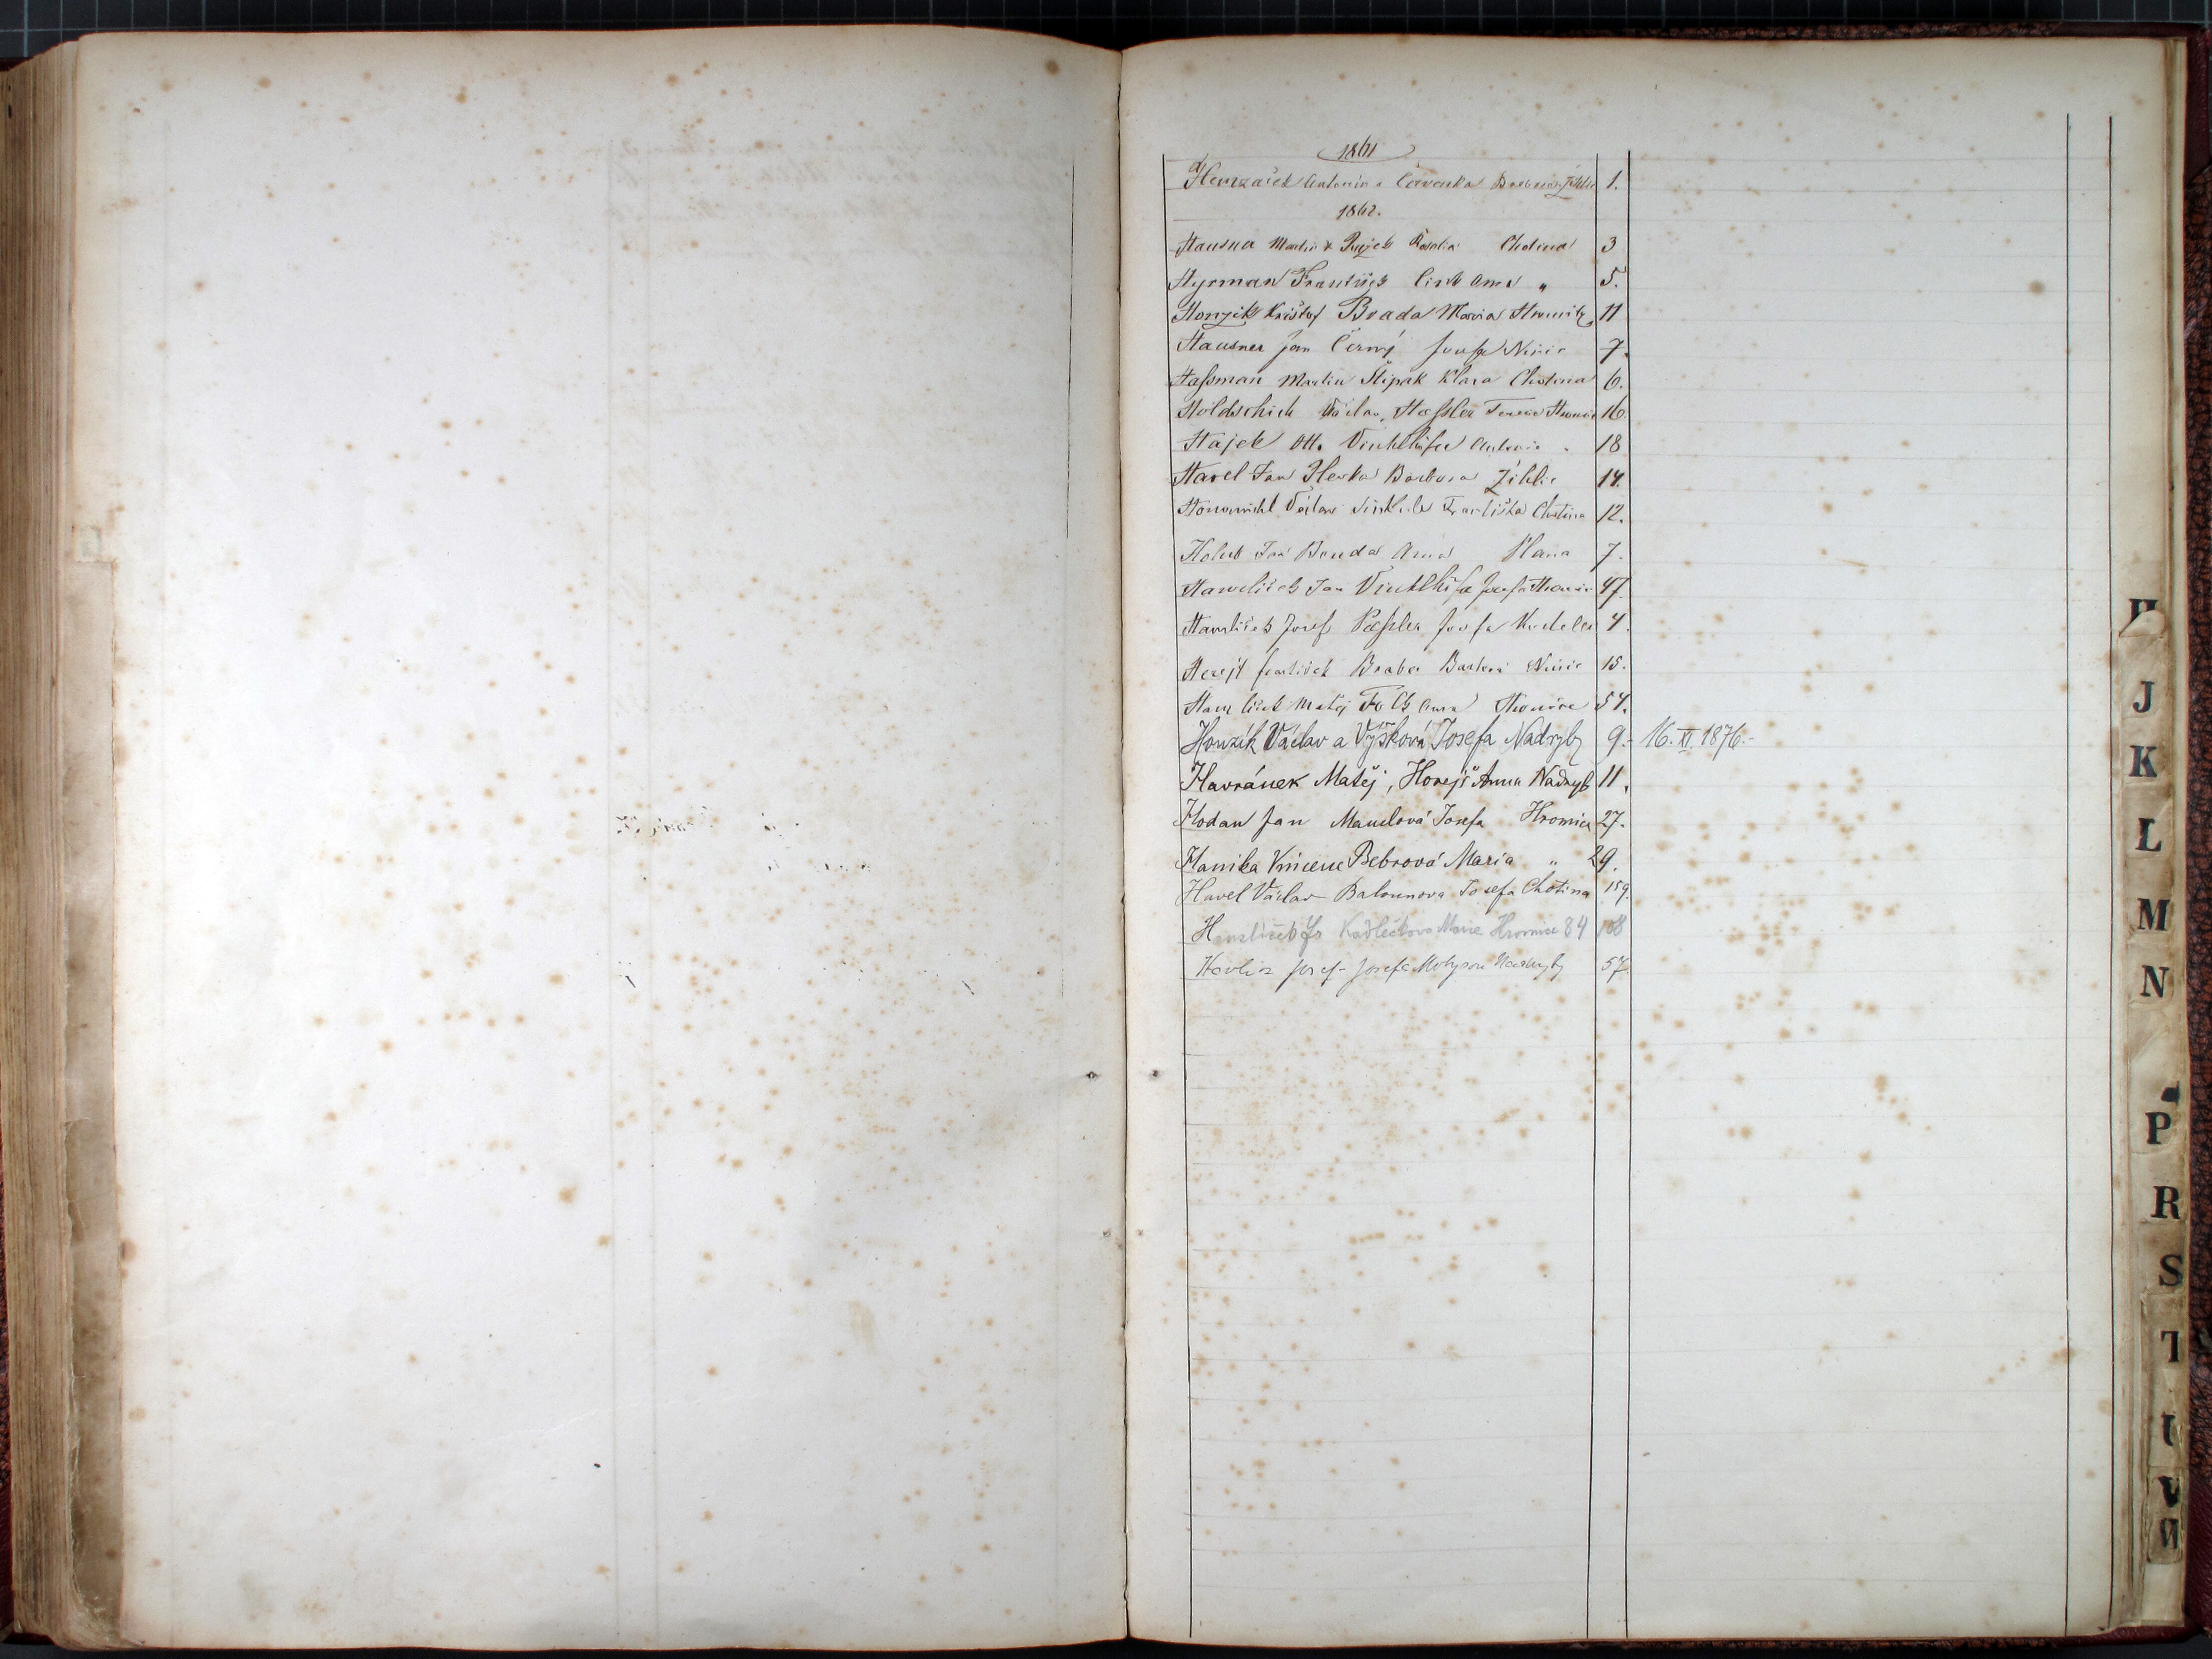 1861
Antonín Červenka Barbora 1.
1862.
Hausna Martin & Růžek Rosalia Chotina 3
Hyrman František Anna " 5.
Honzik Krištof Brada Maria Hromitz 11
Hausner Jan Černý Josefa Nynic 7.
Hassman Martin Štipak Klara Chotina 6.
Holdschick Václav, Hessler Terezie Hromic 16.
Hajek Otto Vinkelhöfer Antonie " 18
Havel Jan Barbora Žihlic 14.
Václav Františka Chotina 12.
Holub Jan Bouda Anna Planá 7.
Havelíček Jan Vinkelhöfer Josefa Hromic 47.
Havlíček Josef Josefa 4.
František Braber Barbora Nynic 15.
Havlíček Matěj Anna Hromice 54.
Houzík Václav a Výšková Josefa Nadryby 9.- 16. XI. 1876.-
Havránek Matěj, Horejš Anna Nadryb 11.
Hodan Jan Maudlová Josefa Hromice 27.
Hanika Vincenc Bebrová Maria " 29.
Havel Václav Balounova Josefa Chotina 159.
Havlíček Fr Kadlečkova Marie Hromice 84 108
Havlicz Josef - Josefa Nadryby 57.
J
K
L
M
N
P
R
S
T
U
V